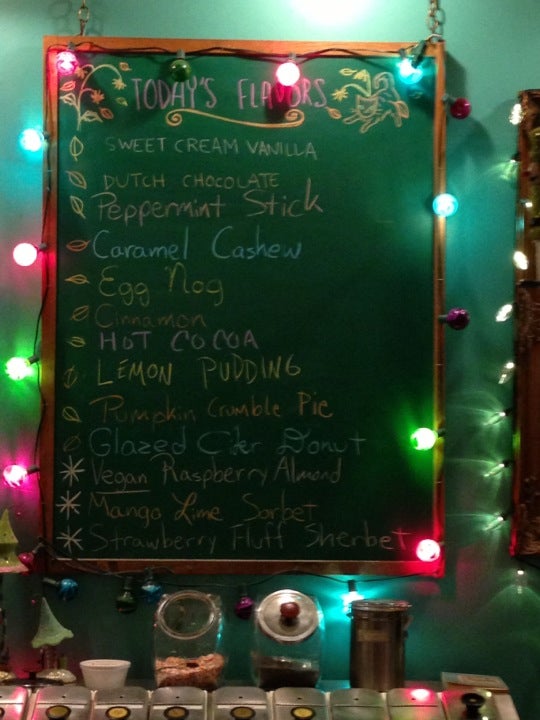 TODAY'S FLAVORS
SWEET CREAM VANILLA
DUTCH CHOCOLATE
Peppermint Stick
Caramel Cashew
Egg Nog
Cinnamon
HOT COCOA
LEMON PUDDING
Pumpkin Crumble Pie
Glazed Cider Donut
Vegan Raspberry Almond
Mango Lime Sorbet
Strawberry Fluff Sherbet